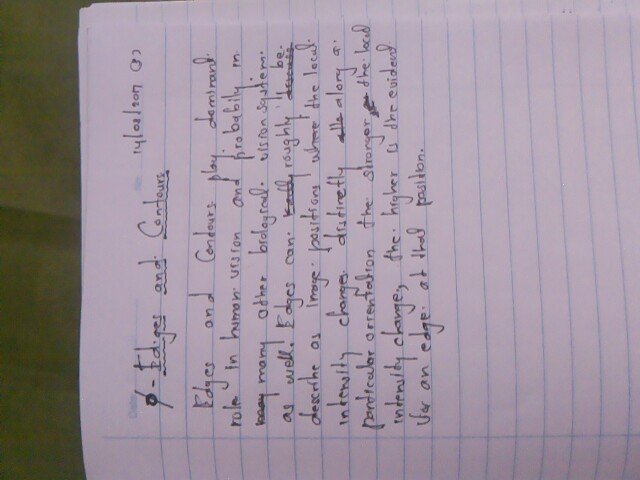 14/08/2017 (3)
6 - Edges and Contours
Edges and Contours play dominant
role in human vission and probabily in
many other biological vission system.
as well. Edges can roughly be
describe as image positions where the local
intensity changes distinetly along a
particular orientation the stronger the local
intensity change, the higher is the evidend
for an edge at that position.